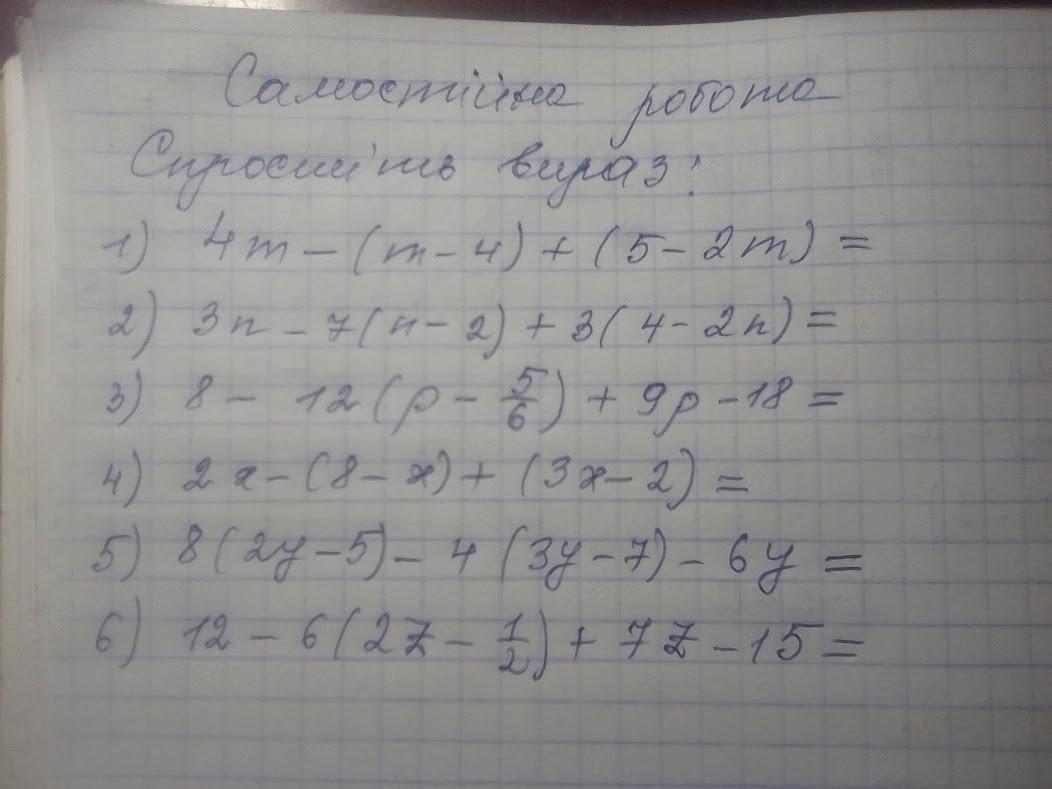 Самостійна робота
Спростіть вираз:
1) 4m - (m - 4) + (5 - 2m) =
2) 3n - 7(n - 2) + 3(4 - 2n) =
3) 8 - 12(p - 5/6) + 9p - 18 =
4) 2x - (8 - x) + (3x - 2) =
5) 8(2y - 5) - 4(3y - 7) - 6y =
6) 12 - 6(2z - 1/2) + 7z - 15 =